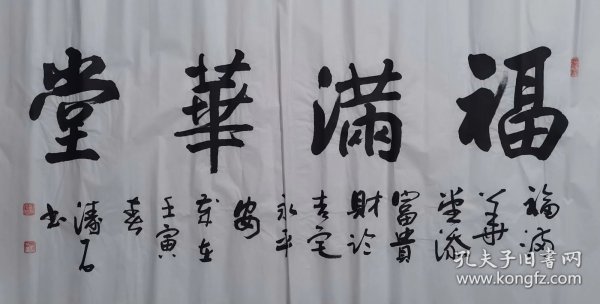 福滿華堂
福满
華
堂添
富貴
財临
吉宅
永平
安
歲在
壬寅
春
濤石
书
孔夫子旧书网
www.kongfz.com